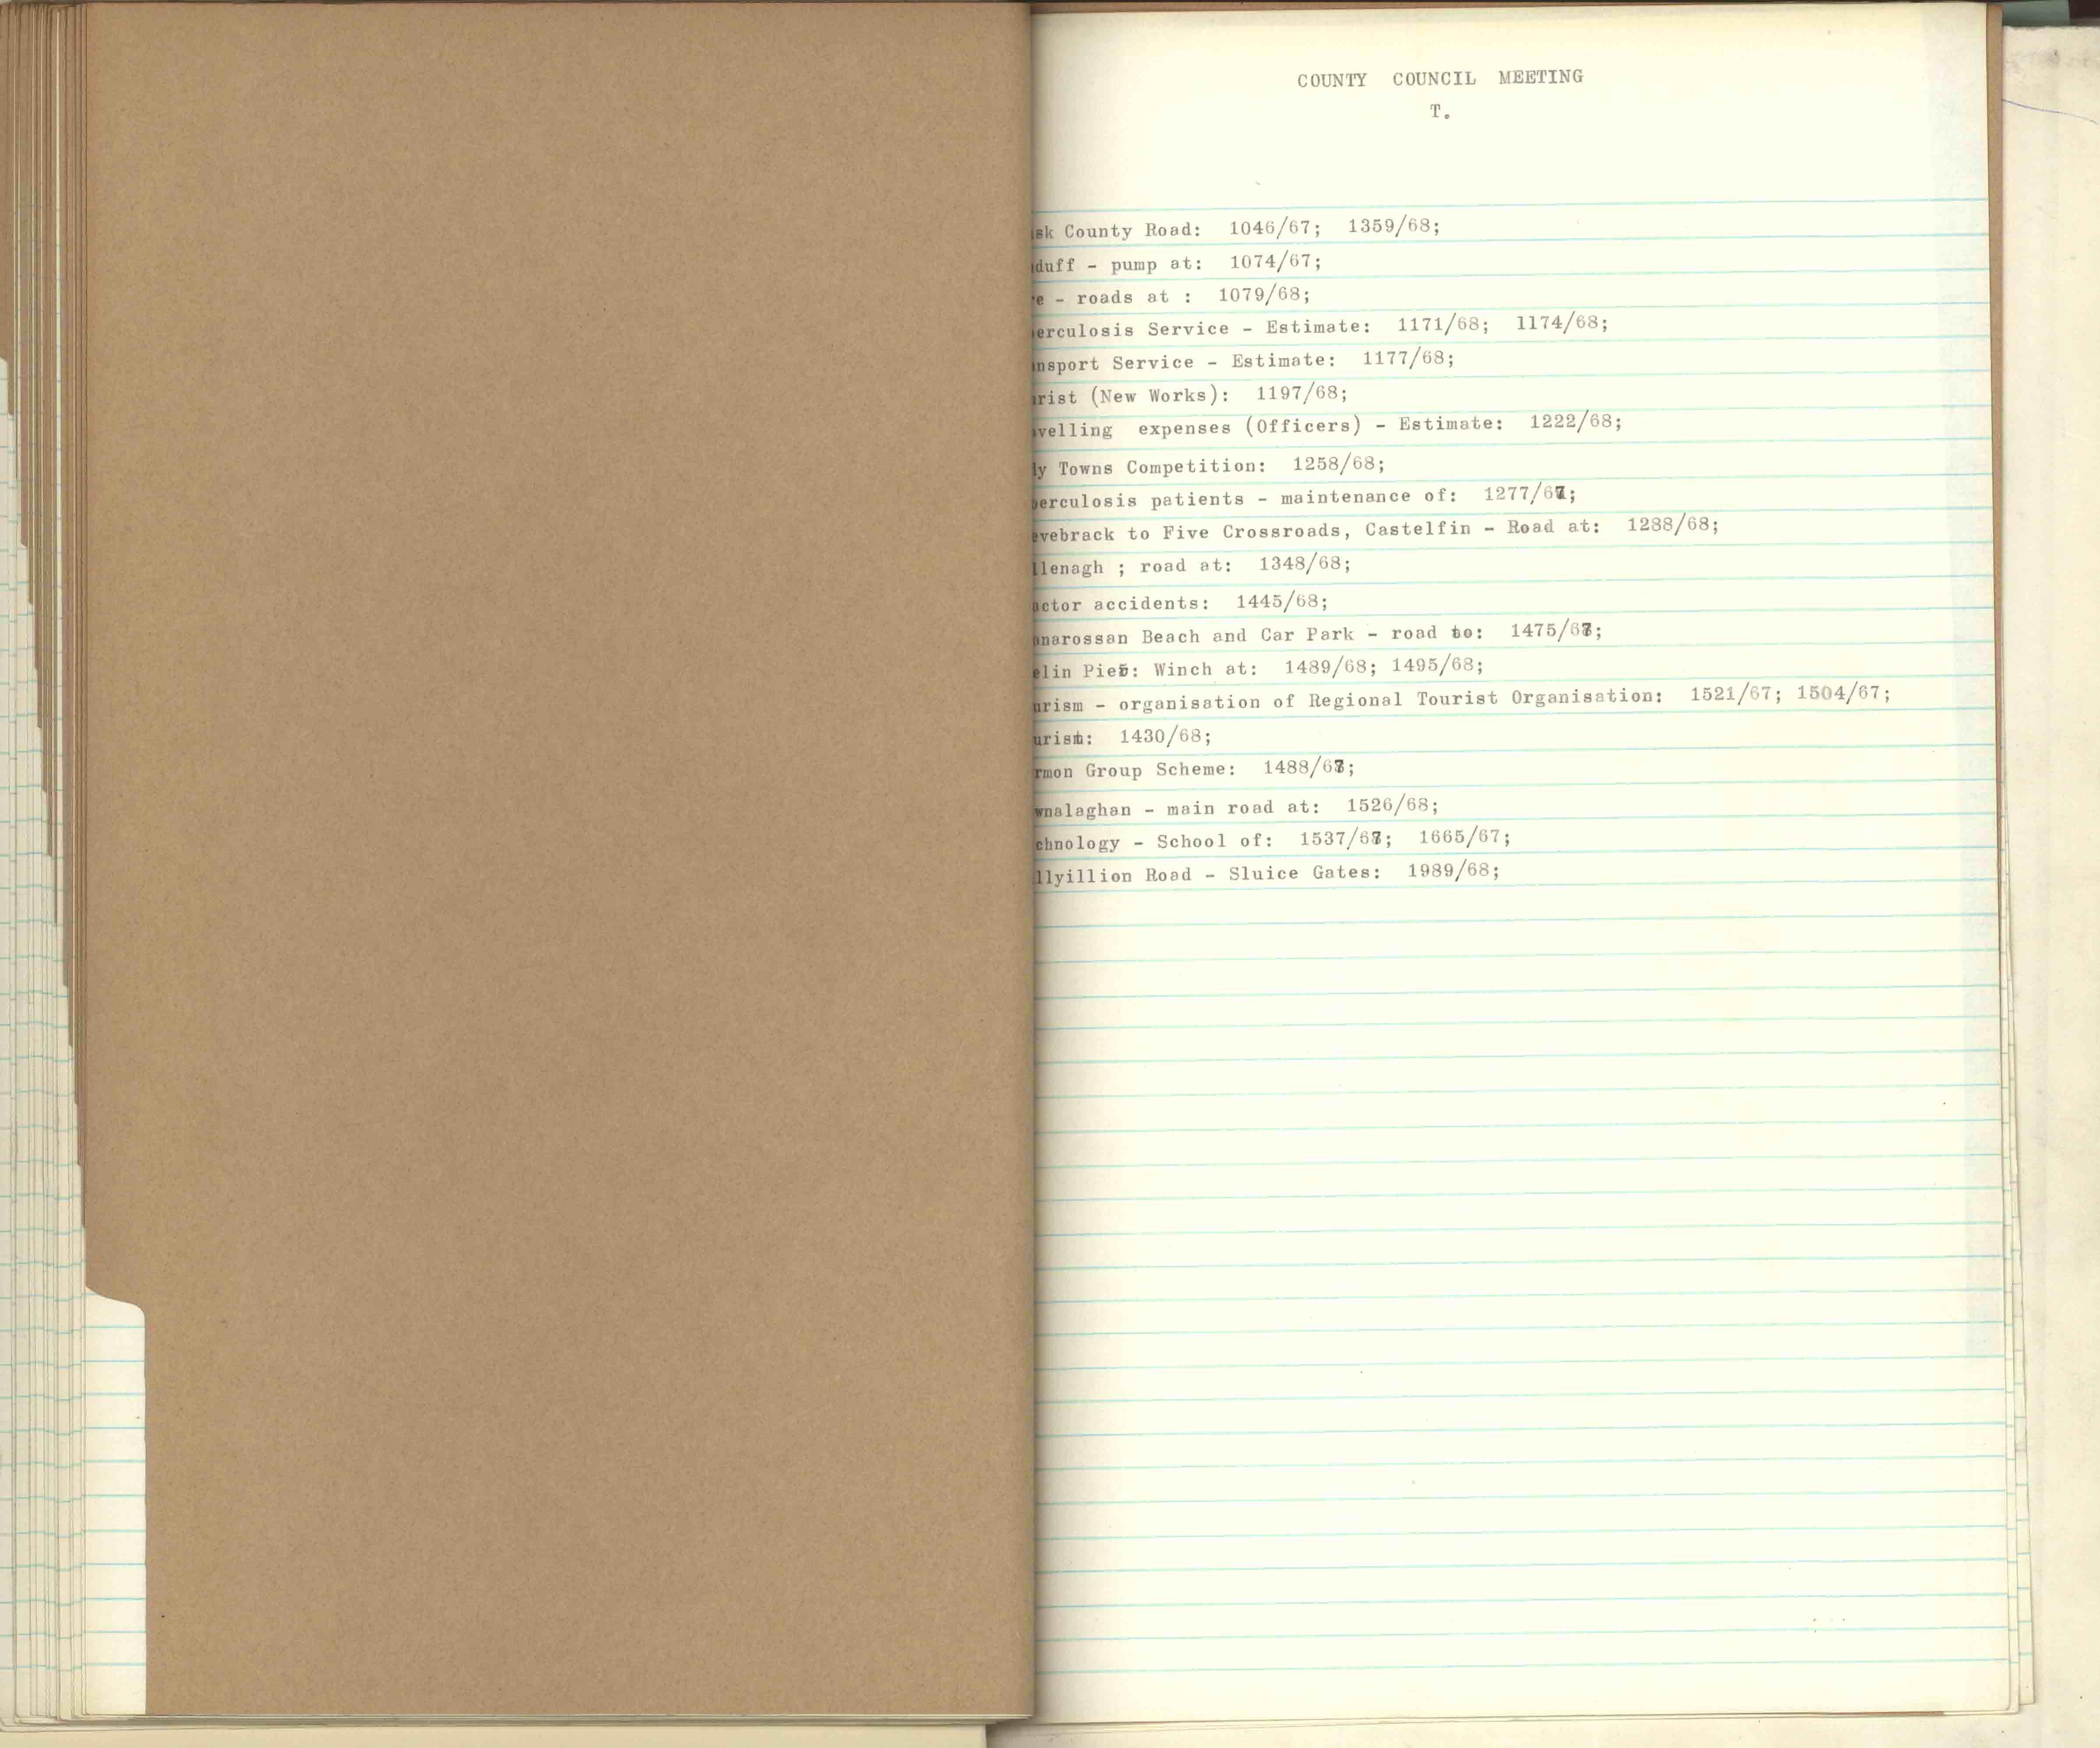 COUNTY COUNCIL MEETING
T.
sk County Road: 1046/67; 1359/68;
duff - pump at: 1074/67;
e - roads at : 1079/68;
erculosis Service - Estimate: 1171/68; 1174/68;
nsport Service - Estimate: 1177/68;
rist (New Works): 1197/68;
velling expenses (Officers) - Estimate: 1222/68;
y Towns Competition: 1258/68;
erculosis patients - maintenance of: 1277/67;
evebrack to Five Crossroads, Castelfin - Road at: 1288/68;
llenagh ; road at: 1348/68;
actor accidents: 1445/68;
narossan Beach and Car Park - road to: 1475/68;
elin Pier: Winch at: 1489/68; 1495/68;
urism - organisation of Regional Tourist Organisation: 1521/67; 1504/67;
urism: 1430/68;
rmon Group Scheme: 1488/68;
wnalaghan - main road at: 1526/68;
chnology - School of: 1537/68; 1665/67;
llyillion Road - Sluice Gates: 1989/68;